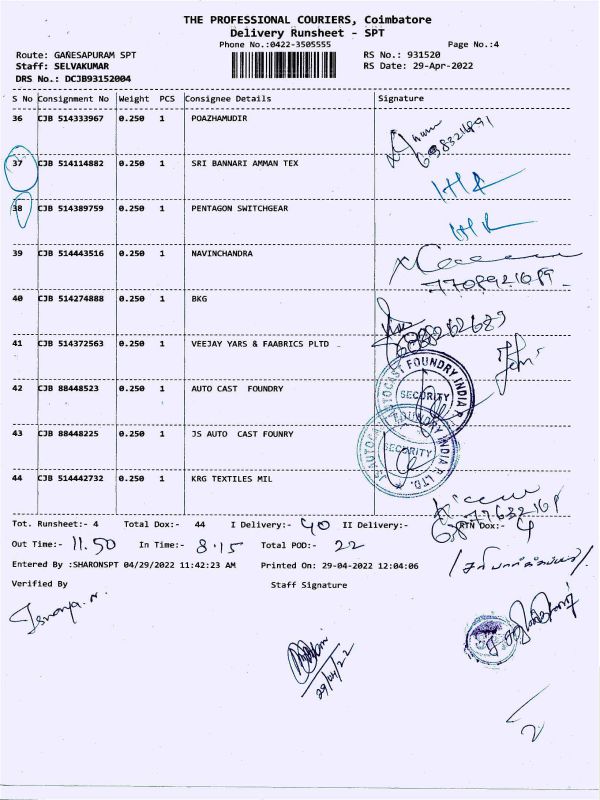 THE PROFESSIONAL COURIERS, Coimbatore
Delivery Runsheet - SPT
Phone No.:0422-3505555 Page No.:4
Route: GANESAPURAM SPT RS No.: 931520
Staff: SELVAKUMAR RS Date: 29-Apr-2022
DRS No.: DCJB93152004
S No Consignment No Weight PCS Consignee Details Signature
36 CJB 514333967 0.250 1 POAZHAMUDIR
37 CJB 514114882 0.250 1 SRI BANNARI AMMAN TEX
38 CJB 514389759 0.250 1 PENTAGON SWITCHGEAR
39 CJB 514443516 0.250 1 NAVINCHANDRA
7708921689
40 CJB 514274888 0.250 1 BKG
41 CJB 514372563 0.250 1 VEEJAY YARS & FAABRICS PLTD
42 CJB 88448523 0.250 1 AUTO CAST FOUNDRY
SECURITY
43 CJB 88448225 0.250 1 JS AUTO CAST FOUNRY
SECURITY
44 CJB 514442732 0.250 1 KRG TEXTILES MIL
Tot. Runsheet:- 4 Total Dox:- 44 I Delivery:- 40 II Delivery:- RTN Dox:- 4
Out Time:- 11.50 In Time:- 8.15 Total POD:- 22
Entered By :SHARONSPT 04/29/2022 11:42:23 AM Printed On: 29-04-2022 12:04:06
Verified By Staff Signature
29/04/22
2